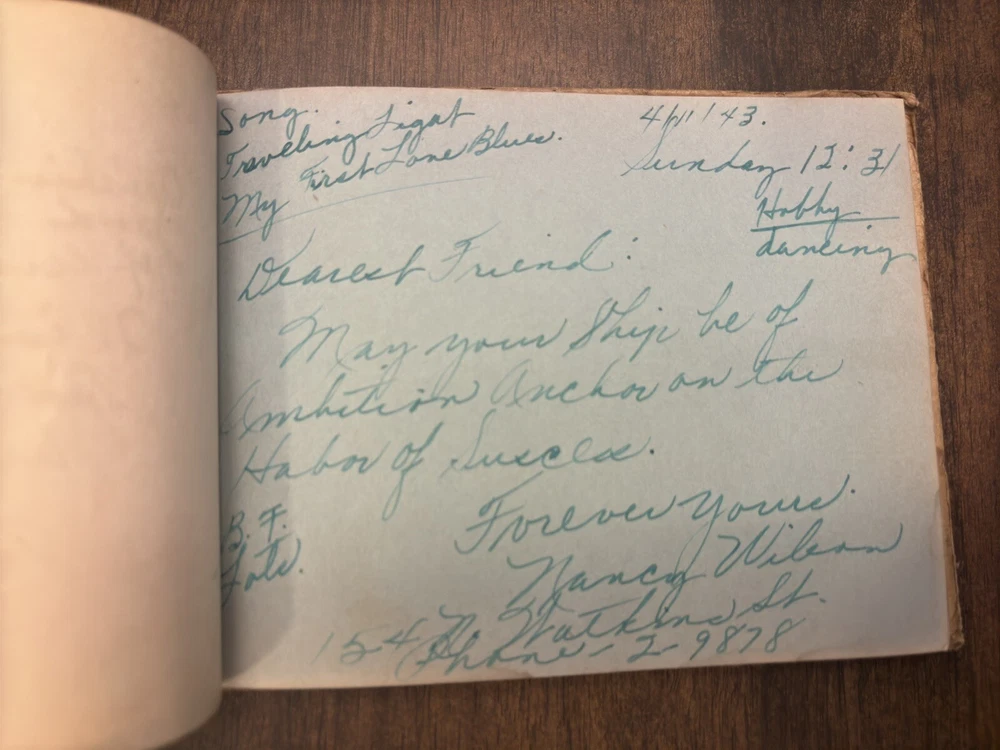 Song.
Travelling Ligat
My First Lone Blues.
4/11/43.
Sunday 12:31
Hobby
dancing
Dearest Friend:
May your Ship be of
Ambition Anchor on the
Habor of Suscess.
Forever Yours.
B. F.
Nancy Wilson
154 N. Watkins St.
Phone-2-9878